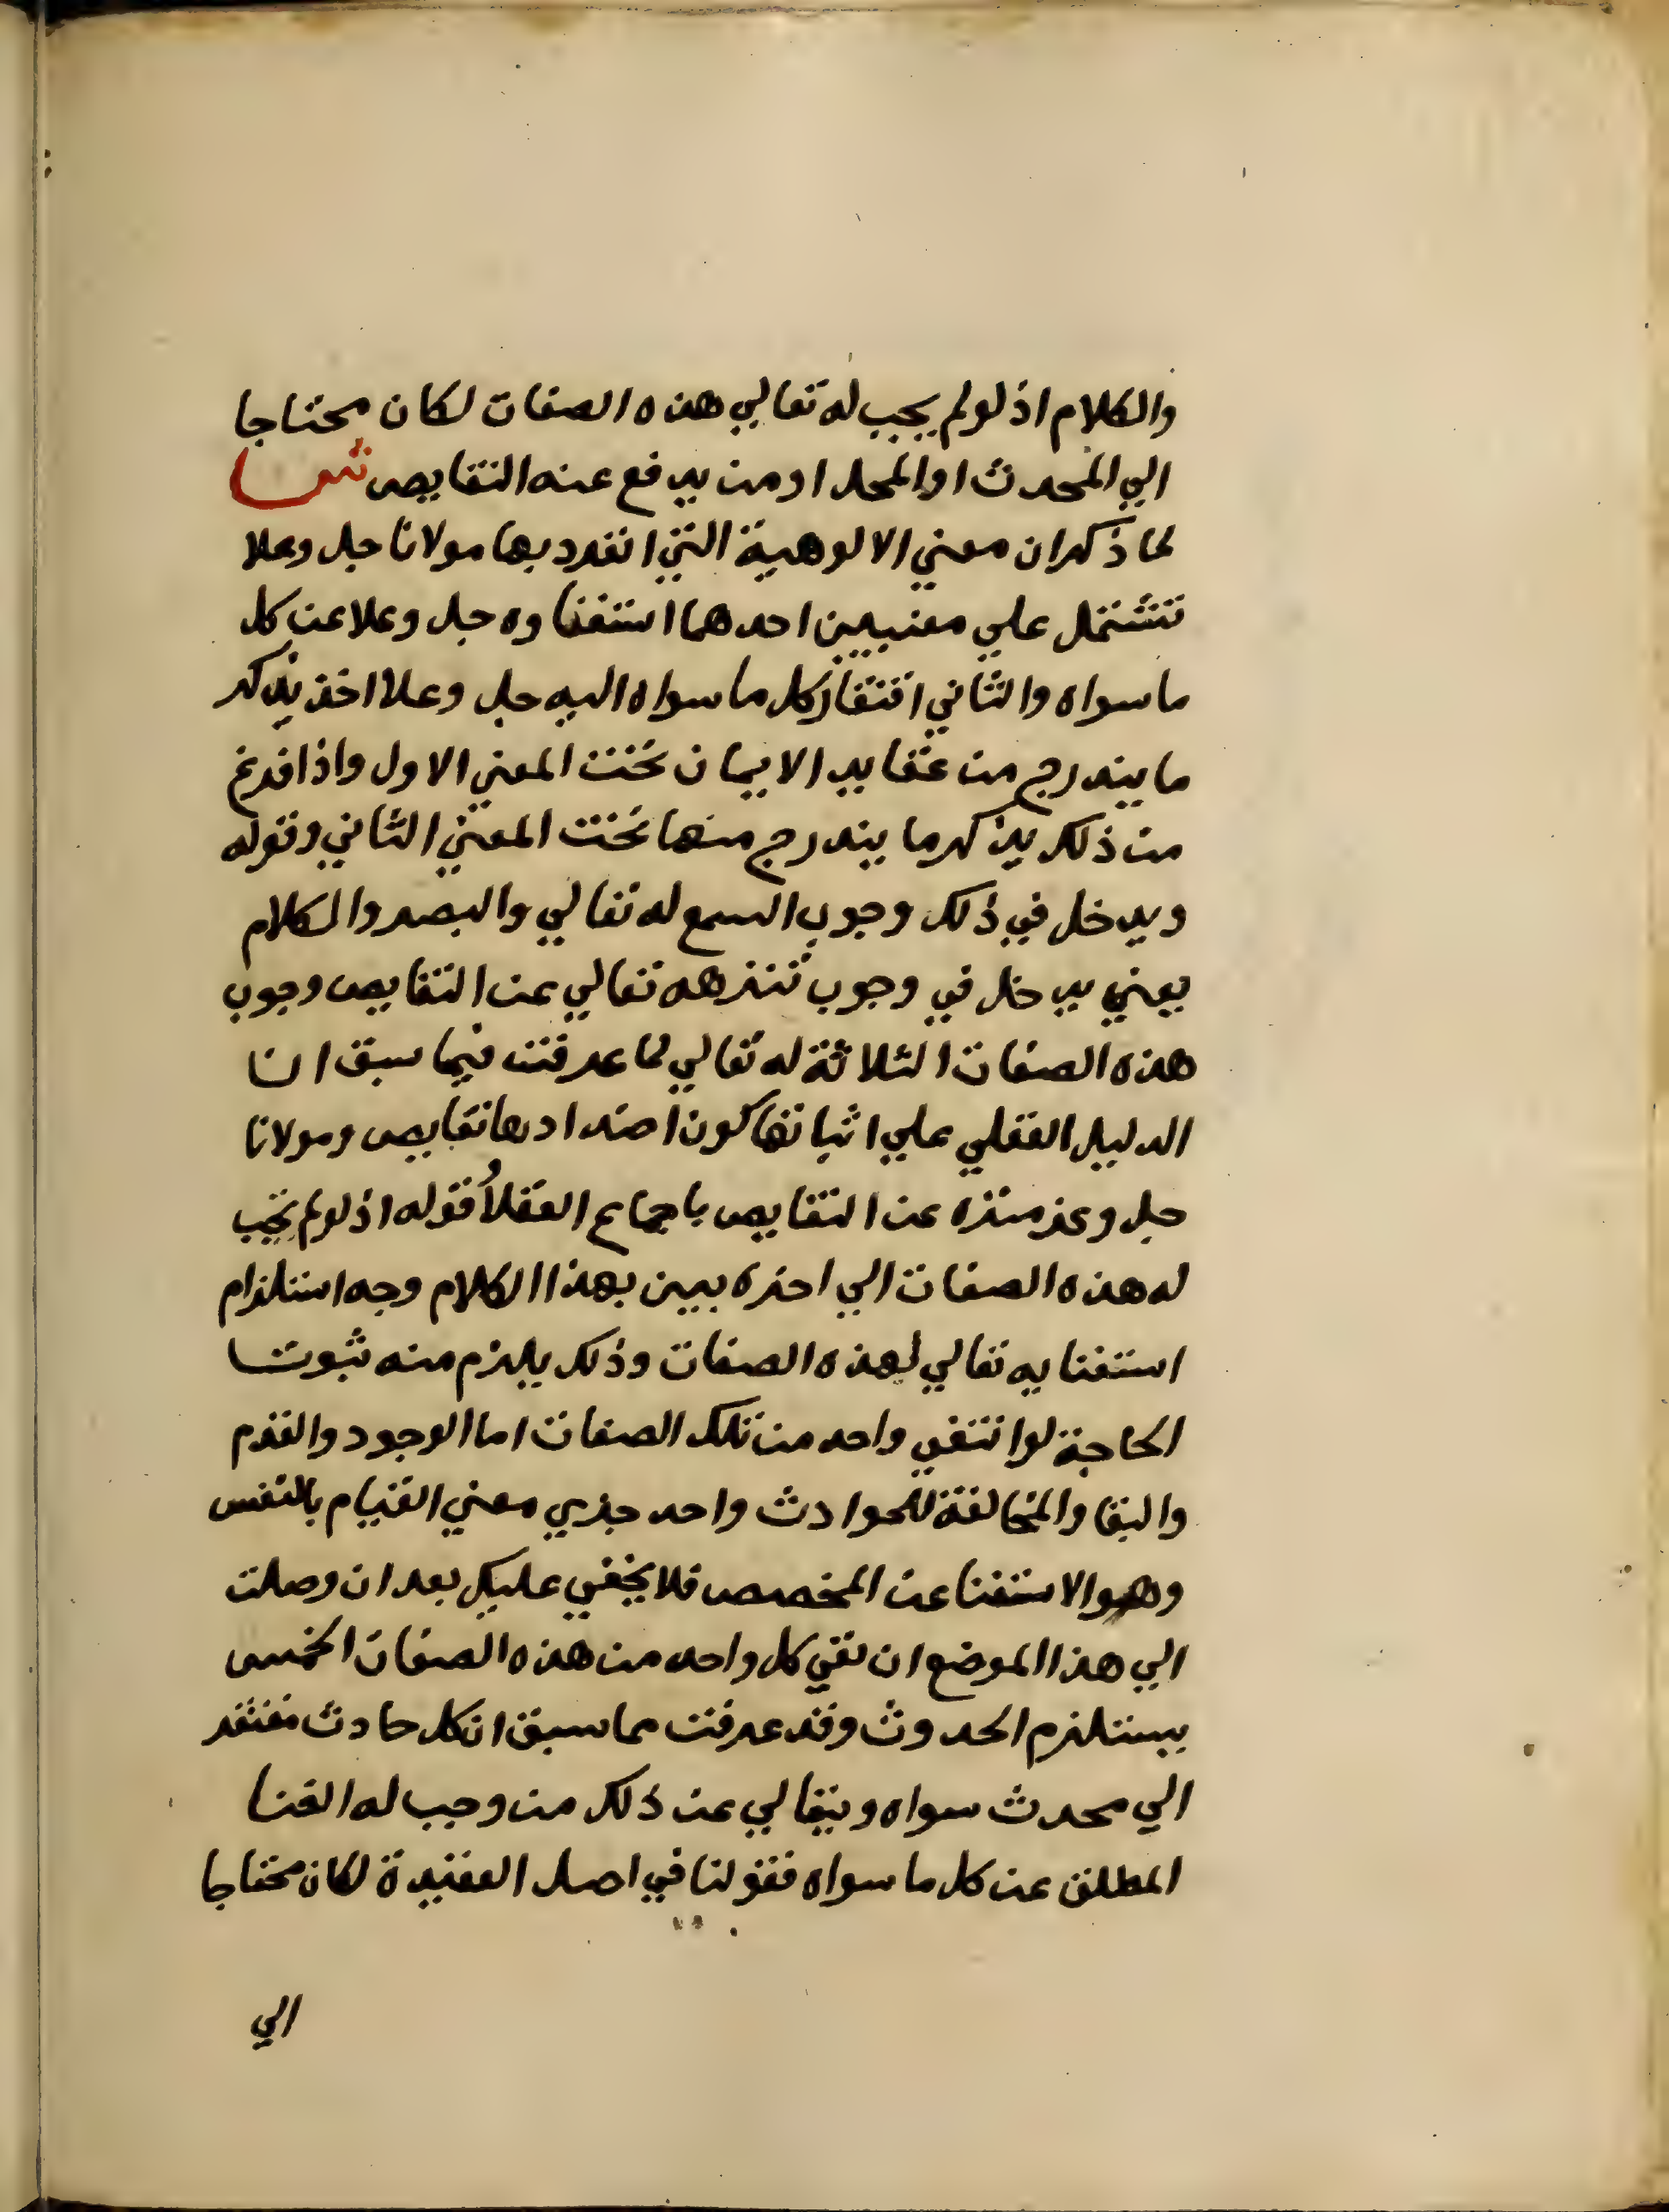 والكلام اذ لولم يجب له تعالي هذه الصفات لكان محتاجا
الي المحدث اوالمحل اومن يدفع عنه النقايص ش
لما ذكران معني الالوهية التي انفرد بها مولانا جل وعلا
تشتمل علي معنيين احدهما استغناوه جل وعلا عن كل
ما سواه والثاني افتقار كل ما سواه اليه جل وعلا اخذ يذكر
ما يندرج من عقايد الايمان تحت المعني الاول واذا فرغ
من ذلك يذكر ما يندرج منها تحت المعني الثاني وقوله
ويدخل في ذلك وجوب السمع له تعالي والبصر والكلام
يعني يدخل في وجوب تنزهه تعالي عن النقايص وجوب
هذه الصفات الثلاثة له تعالي لما عرفت فيما سبق ان
الدليل العقلي علي اثباتها كون اضدادها نقايص ومولانا
جل وعز منزه عن النقايص باجماع العقلاء قوله اذ لولم تجب
له هذه الصفات الي اخره يبين بهذا الكلام وجه استلزام
استغنايه تعالي لهذه الصفات وذلك يلزم منه ثبوت
الحاجة لوانتفي واحد من تلك الصفات اما الوجود والقدم
والبقا والمخالفة للحوادث واحد جزي معني القيام بالنفس
وهو الاستغنا عن المخصص فلا يخفي عليك بعد ان وصلت
الي هذا الموضع ان نفي كل واحد من هذه الصفات الخمس
يستلزم الحدوث وقد عرفت مما سبق ان كل حادث مفتقر
الي محدث سواه ويتعالي عن ذلك من وجب له الغنا
المطلق عن كل ما سواه فقولنا في اصل العقيدة لكان محتاجا
الي